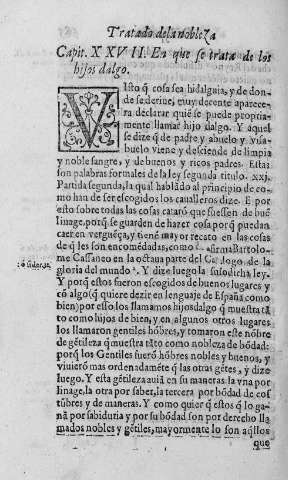 Tratado dela nobleza
Capit. XXVII. En que se trata de los
hijos dalgo.
VIsto q̃ cosa sea hidalguia, y de don-
de se deriue, muy decente aparece-
ra declarar quiẽ se puede propria-
mente llamar hijo dalgo. Y aquel
se dize q̃ de padre y abuelo y visa-
buelo viene y desciende de limpia
y noble sangre, y de buenos y ricos padres. Estas
son palabras formales de la ley segunda titulo. xxj.
Partida segunda, la qual hablãdo al principio de co-
mo han de ser escogidos los caualleros dize. E por
esto sobre todas las cosas cataró que fuessen de buẽ
linage, porq̃ se guarden de hazer cosa porq̃ puedan
caer en verguẽça, y tiene mayor recato en las cosas
de q̃ les son encomẽdadas, como afirma Bartolo-
me Cassaneo en la octaua parte del Catalogo de la
gloria del mundo. Y dize luego la susodicha ley.
Y porq̃ estos fueron escogidos de buenos lugares y
cõ algo (q̃ quiere dezir en lenguaje de España como
bien) por esso los llamamos hijosdalgo q̃ muestra tã
to como hijos de bien, y en algunos otros lugares
los llamaron gentiles hõbres, y tomaron este nõbre
de gẽtileza q̃ muestra tãto como nobleza de bõdad:
porq̃ los Gentiles fuerõ hõbres nobles y buenos, y
viuierõ mas ordenadamẽte q̃ las otras gẽtes, y dize
luego. Y esta gẽtileza auiã en su maneras. la vna por
linage, la otra por saber, la tercera por bõdad de cos
tũbres y de maneras. Y como quier q̃ estos q̃ lo ga-
nã por sabiduria y por su bõdad son por derecho lla
mados nobles y gẽtiles, mayormente lo son aq̃llos
que